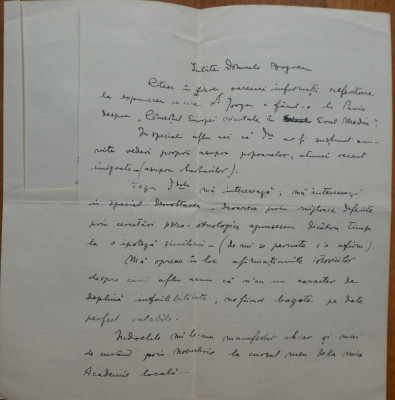 Iubite Domnule Dogrea
Citesc în ziare oarecari informații referitoare
la expunerea ce ne Dl Jorga a făcut-o la Paris
despre „Comerțul Europei orientale în Evul Mediu”.
In special aflu aci că Dsa ar fi susținut anu-
mite vederi proprii asupra popoarelor, atunci recent
imigrate (asupra barbarilor).
Teza Dsale mă interesează; mă interesează
în special dezvoltarea - deoarece prin mijloace diferite
prin cercetări psiho-etnologice ajunsesem de câtva timp
la o ipoteză similară - (de mi se permite s'o afirm).
Mă opream în loc afirmațiunile istoricilor
despre cari aflu acum că n'au un caracter de
deplină infailibilitate, nefiind bazate pe date
perfect valabile.
Indoelile mi le-am manifestat chiar și mai
de curând prin Noembrie la cursul meu dela mica
Academie locală. -